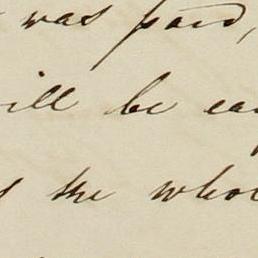 was paid,
will be
the whol